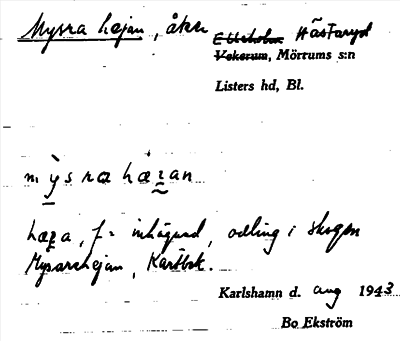 Myrra hejan, åker
Elleholm Hästaryd
Vekerum, Mörrums s:n
Listers hd, Bl.
hæʒa, f = inhägnad, odling i skogen
Mysarehejan, Kartbok.
Karlshamn d. aug 1943
Bo Ekström